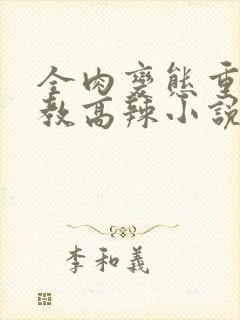 全肉變態重
教高辣小說
李和義